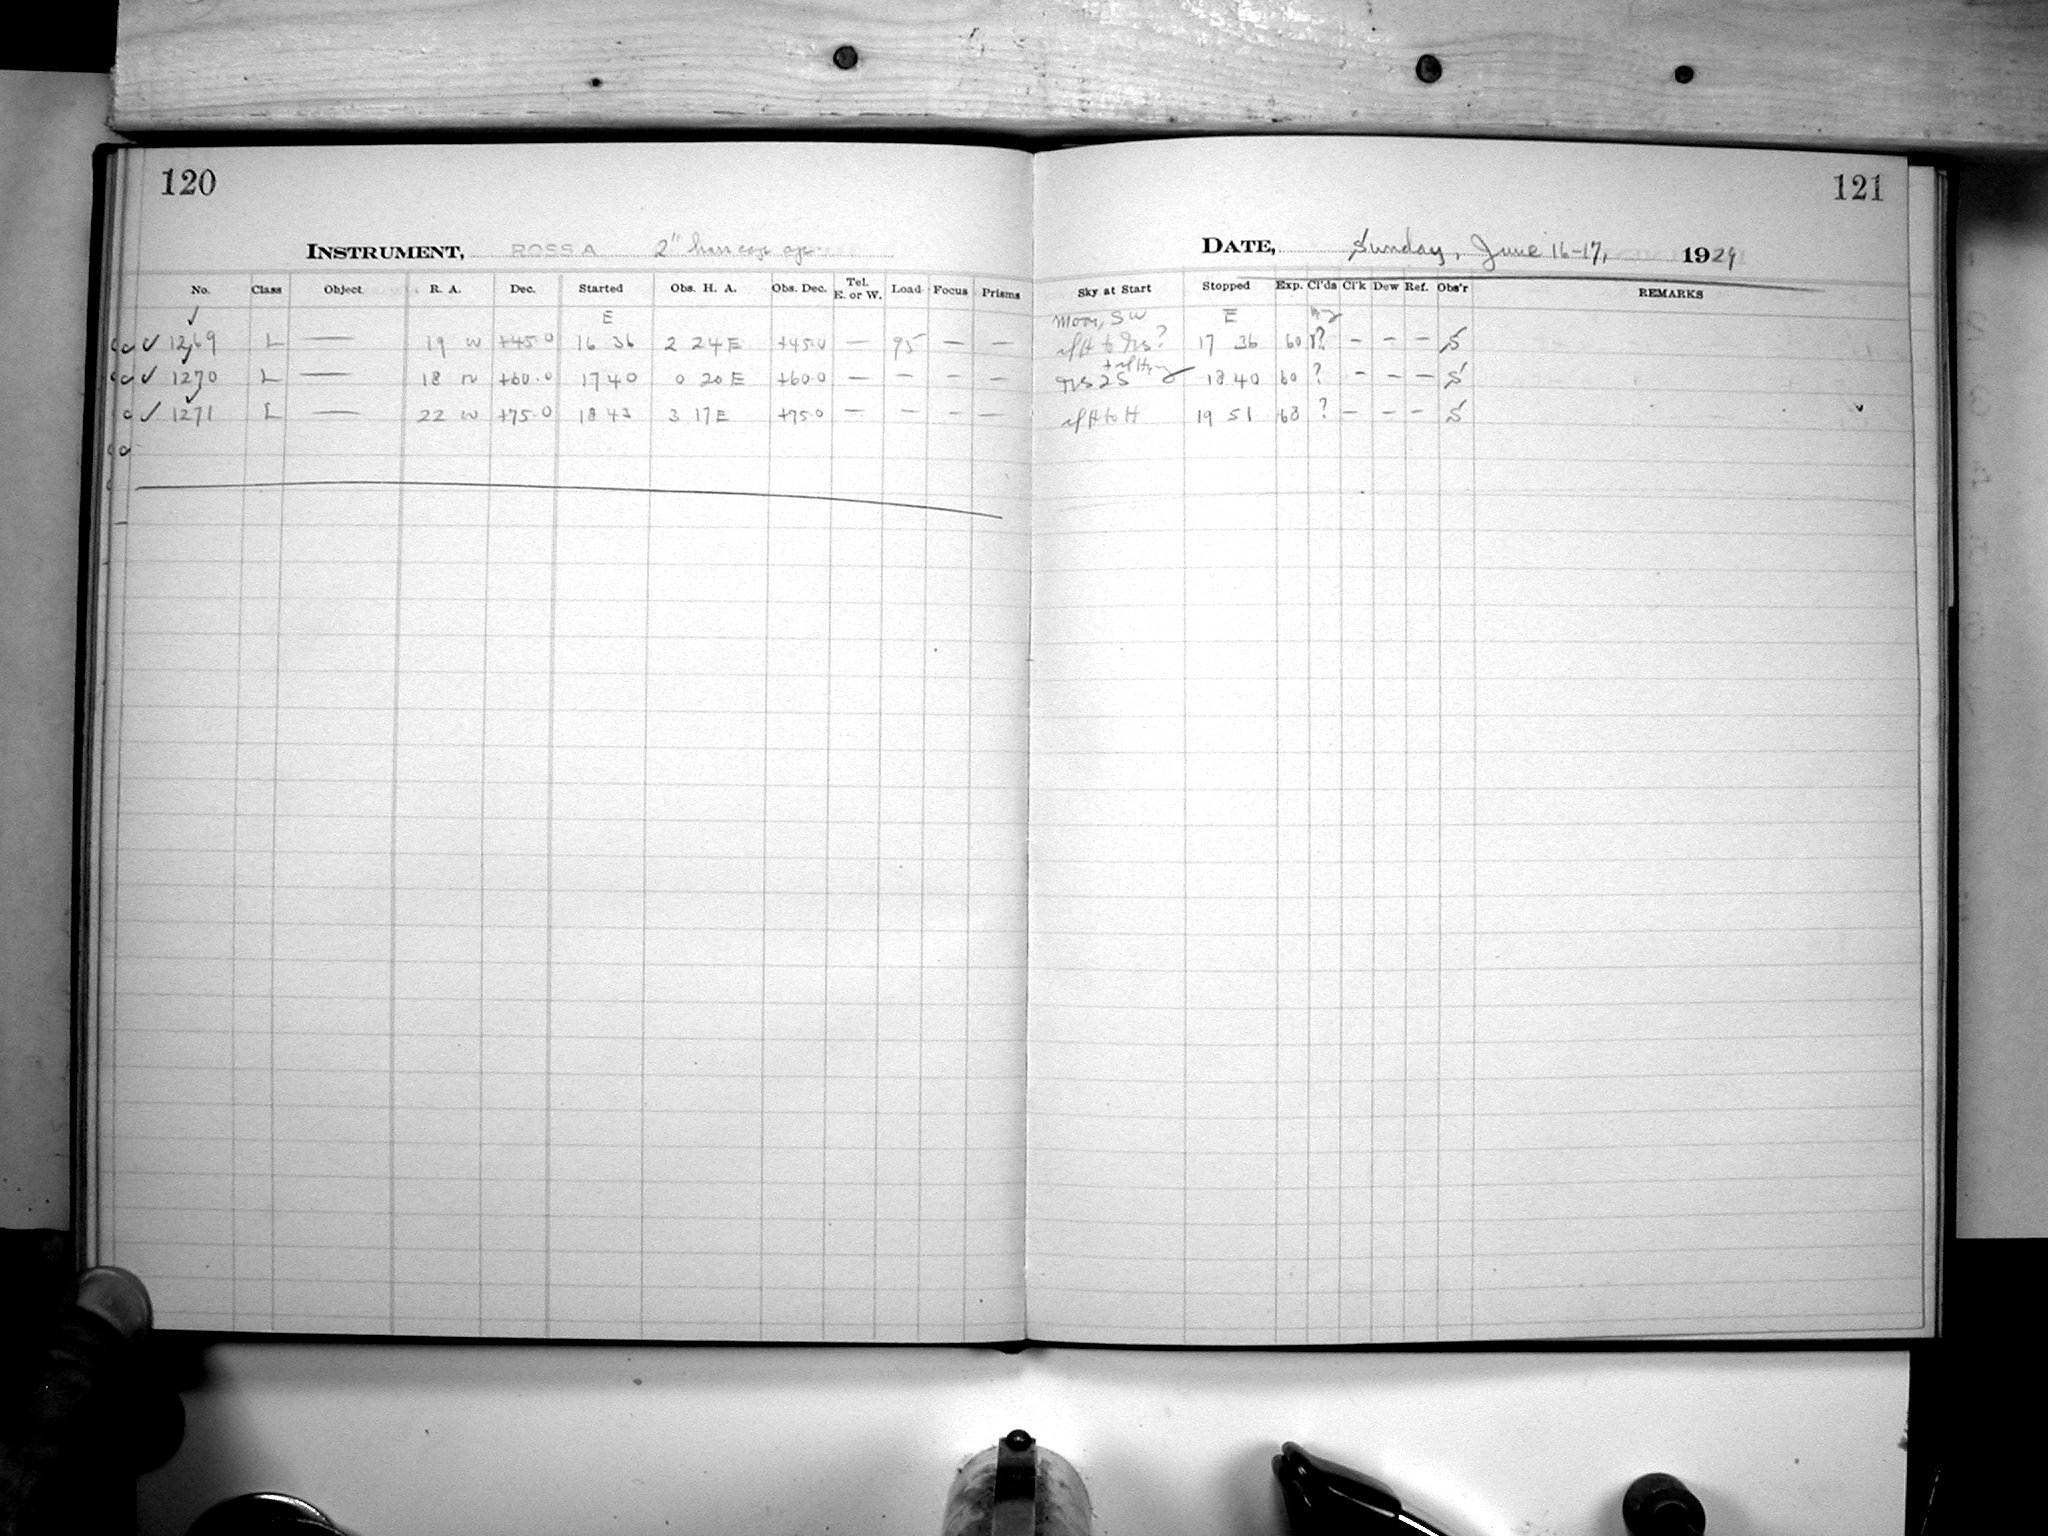 120
INSTRUMENT, ROSS A 2"
No. Class Object R. A. Dec. Started Obs. H. A. Obs. Dec. Tel. E. or W. Load Focus Prisms
E
✓ 1269 L — 19 W +45.0 16 36 2 24 E +45.0 — 95 — —
✓ 1270 L — 18 W +60.0 17 40 0 20 E +60.0 — — — —
✓ 1271 L — 22 W +75.0 18 43 3 17 E +75.0 — — — —
121
DATE, Sunday, June 16-17, 1929
Sky at Start Stopped Exp. Cl'ds Cl'k Dew Ref. Obs'r REMARKS
Moon, SW E
H to ? 17 36 60 ? — — — S
25 18 40 60 ? — — — S
H to H 19 51 68 ? — — — S